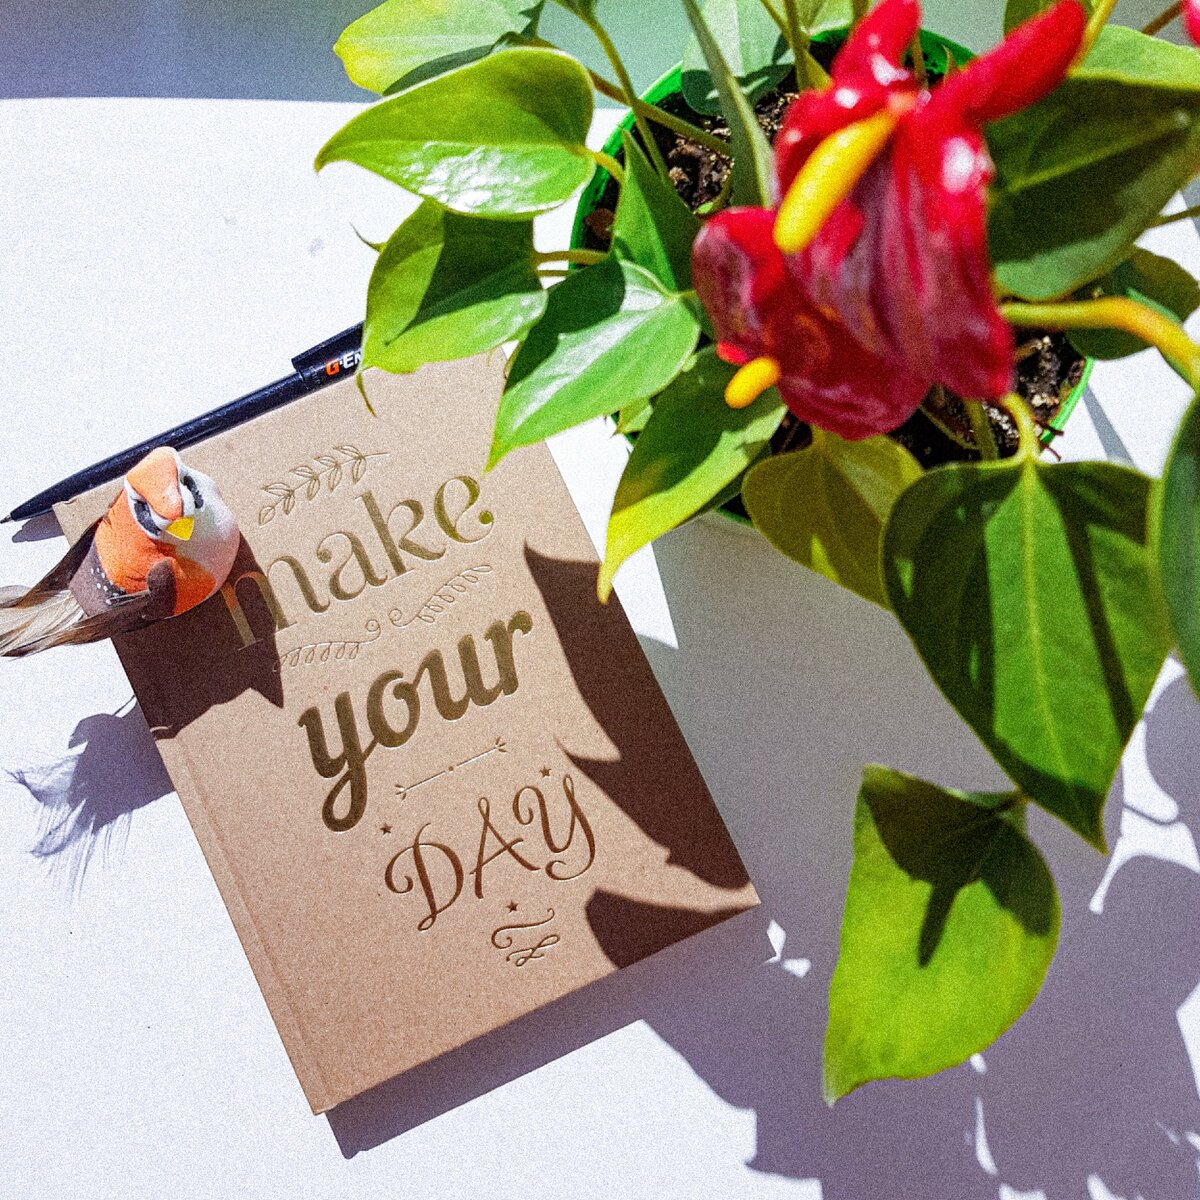 G'EN
make
your
DAY